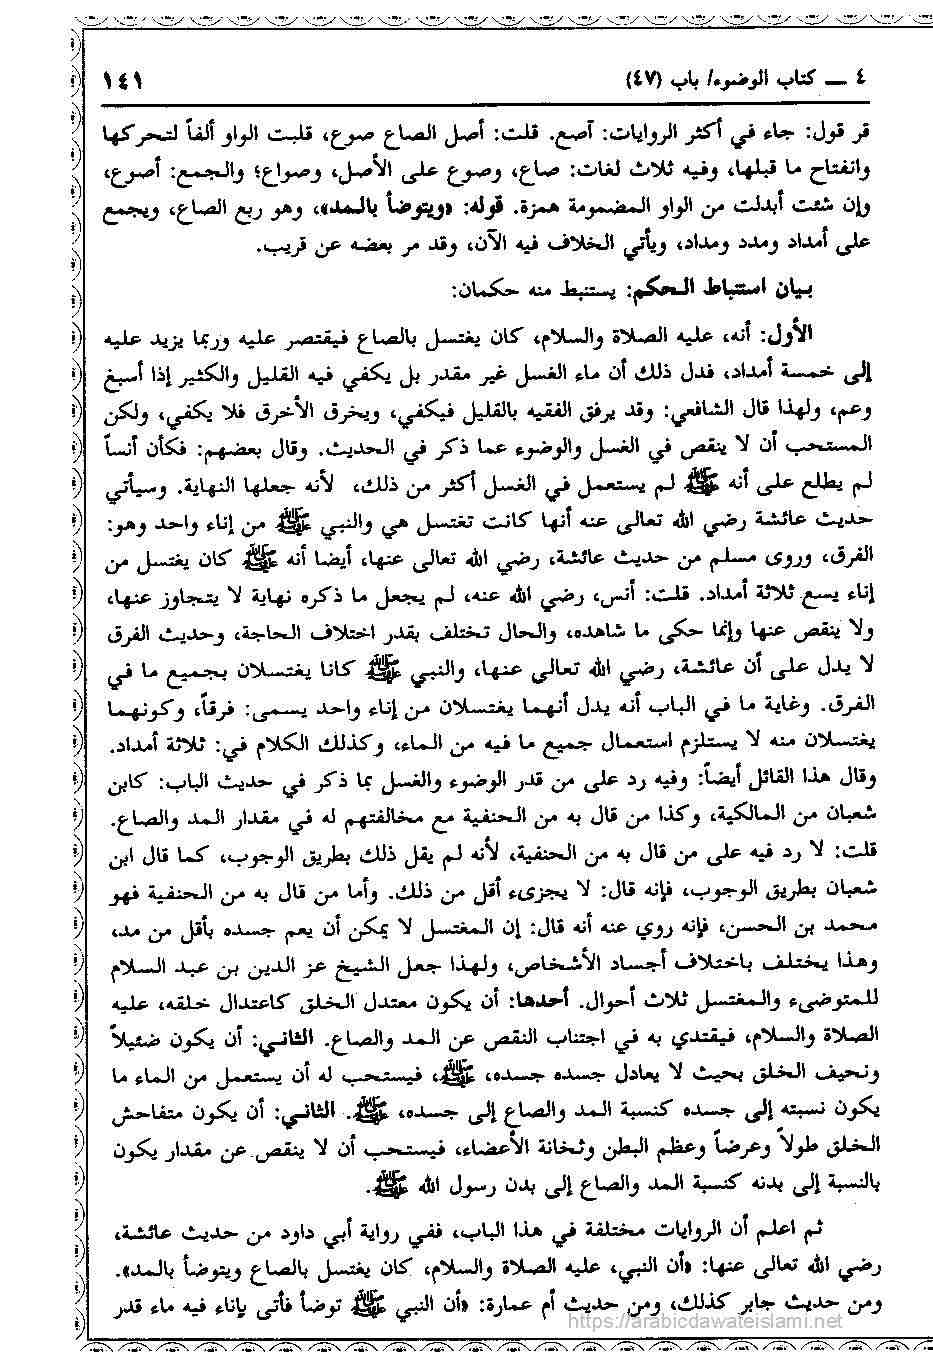 ٤ ـــ كتاب الوضوء/ باب (٤٧) ١٤١
قر قول: جاء في أكثر الروايات: آصع. قلت: أصل الصاع صوع، قلبت الواو ألفاً لتحركها
وانفتاح ما قبلها، وفيه ثلاث لغات: صاع، وصوع على الأصل، وصواع؛ والجمع: أصوع،
وإن شئت أبدلت من الواو المضمومة همزة. قوله: «ويتوضأ بالمد»، وهو ربع الصاع، ويجمع
على أمداد ومدد ومداد، ويأتي الخلاف فيه الآن، وقد مر بعضه عن قريب.
بيان استنباط الحكم: يستنبط منه حكمان:
الأول: أنه، عليه الصلاة والسلام، كان يغتسل بالصاع فيقتصر عليه وربما يزيد عليه
إلى خمسة أمداد، فدل ذلك أن ماء الغسل غير مقدر بل يكفي فيه القليل والكثير إذا أسبغ
وعم، ولهذا قال الشافعي: وقد يرفق الفقيه بالقليل فيكفي، ويخرق الأخرق فلا يكفي، ولكن
المستحب أن لا ينقص في الغسل والوضوء عما ذكر في الحديث. وقال بعضهم: فكأن أنساً
لم يطلع على أنه ﷺ لم يستعمل في الغسل أكثر من ذلك، لأنه جعلها النهاية. وسيأتي
حديث عائشة رضي الله تعالى عنه أنها كانت تغتسل هي والنبي ﷺ من إناء واحد وهو:
الفرق، وروى مسلم من حديث عائشة، رضي الله تعالى عنها، أيضا أنه ﷺ كان يغتسل من
إناء يسع ثلاثة أمداد. قلت: أنس، رضي الله عنه، لم يجعل ما ذكره نهاية لا يتجاوز عنها،
ولا ينقص عنها وإنما حكى ما شاهده، والحال تختلف بقدر اختلاف الحاجة، وحديث الفرق
لا يدل على أن عائشة، رضي الله تعالى عنها، والنبي ﷺ كانا يغتسلان بجميع ما في
الفرق. وغاية ما في الباب أنه يدل أنهما يغتسلان من إناء واحد يسمى: فرقاً، وكونهما
يغتسلان منه لا يستلزم استعمال جميع ما فيه من الماء، وكذلك الكلام في: ثلاثة أمداد.
وقال هذا القائل أيضاً: وفيه رد على من قدر الوضوء والغسل بما ذكر في حديث الباب: كابن
شعبان من المالكية، وكذا من قال به من الحنفية مع مخالفتهم له في مقدار المد والصاع.
قلت: لا رد فيه على من قال به من الحنفية، لأنه لم يقل ذلك بطريق الوجوب، كما قال ابن
شعبان بطريق الوجوب، فإنه قال: لا يجزىء أقل من ذلك. وأما من قال به من الحنفية فهو
محمد بن الحسن، فإنه روي عنه أنه قال: إن المغتسل لا يمكن أن يعم جسده بأقل من مد،
وهذا يختلف باختلاف أجساد الأشخاص، ولهذا جعل الشيخ عز الدين بن عبد السلام
للمتوضىء والمغتسل ثلاث أحوال. أحدها: أن يكون معتدل الخلق كاعتدال خلقه، عليه
الصلاة والسلام، فيقتدي به في اجتناب النقص عن المد والصاع. الثاني: أن يكون ضئيلاً
ونحيف الخلق بحيث لا يعادل جسده جسده، ﷺ، فيستحب له أن يستعمل من الماء ما
يكون نسبته إلى جسده كنسبة المد والصاع إلى جسده، ﷺ. الثاني: أن يكون متفاحش
الخلق طولاً وعرضاً وعظم البطن وثخانة الأعضاء، فيستحب أن لا ينقص عن مقدار يكون
بالنسبة إلى بدنه كنسبة المد والصاع إلى بدن رسول الله ﷺ.
ثم اعلم أن الروايات مختلفة في هذا الباب، ففي رواية أبي داود من حديث عائشة،
رضي الله تعالى عنها: «أن النبي، عليه الصلاة والسلام، كان يغتسل بالصاع ويتوضأ بالمد».
ومن حديث جابر كذلك، ومن حديث أم عمارة: «أن النبي ﷺ توضأ فأتى بإناء فيه ماء قدر
https://arabicdawateislami.net